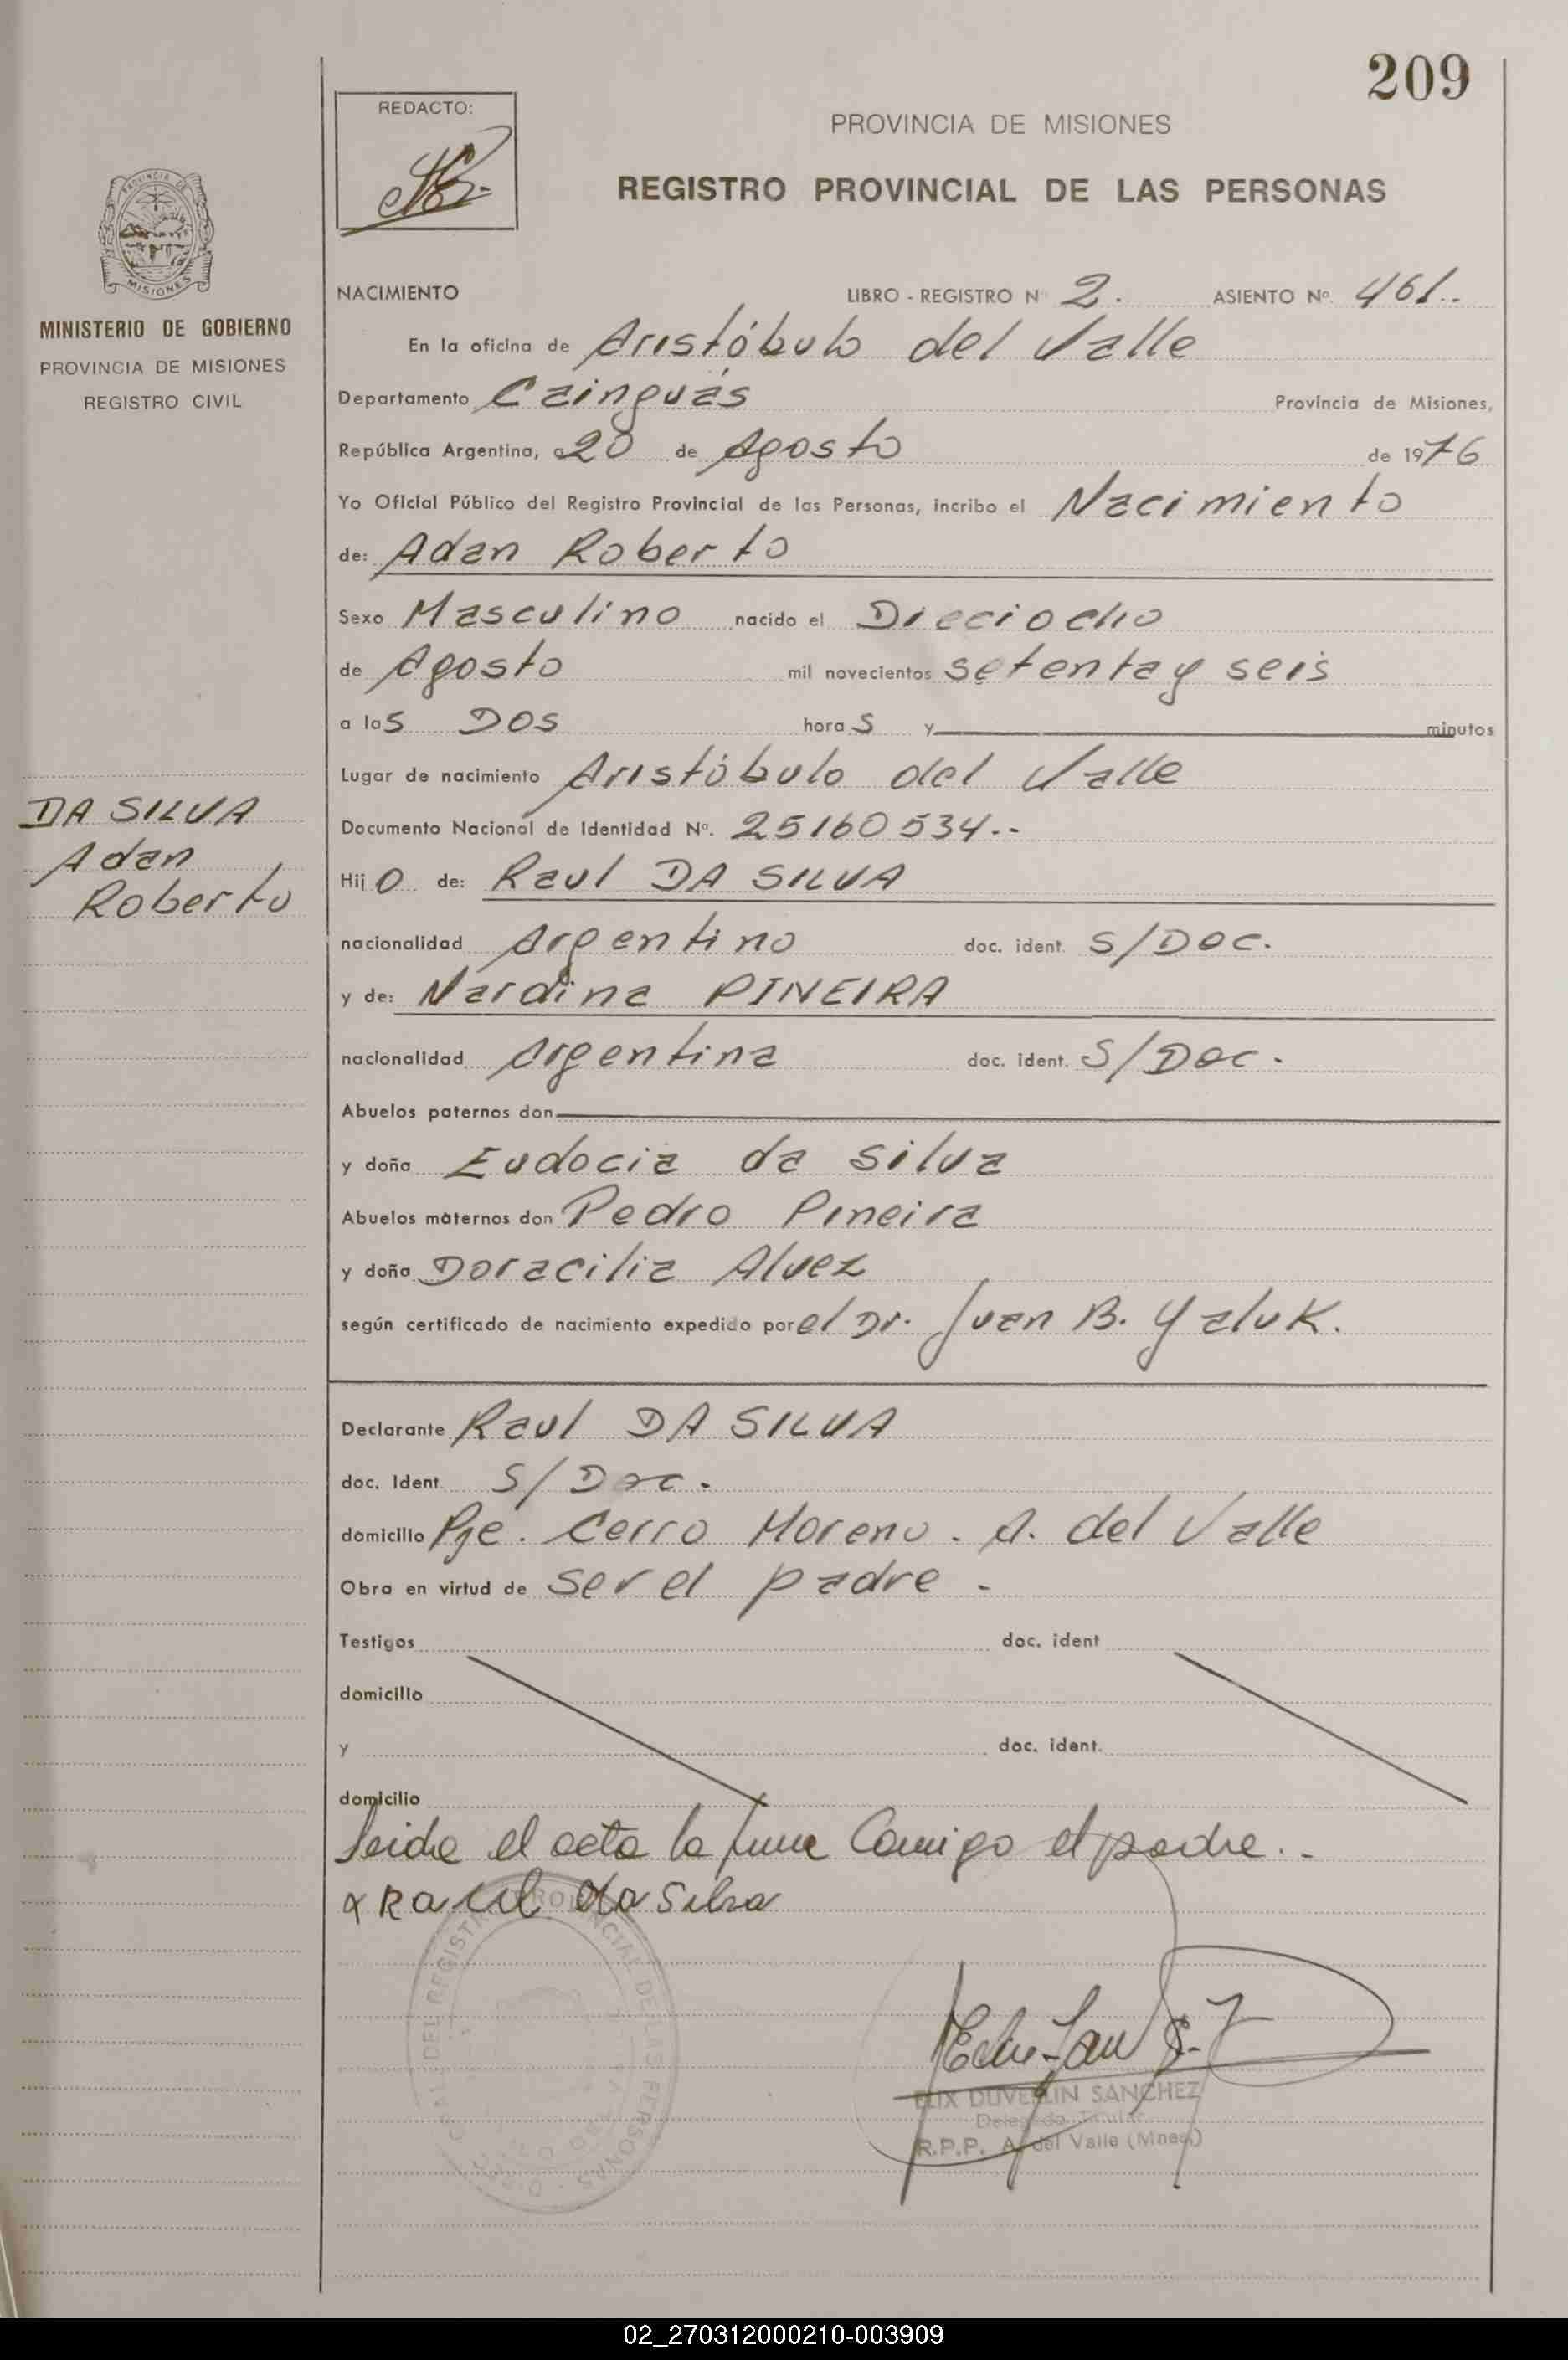 209
REDACTO:
PROVINCIA DE MISIONES
REGISTRO PROVINCIAL DE LAS PERSONAS
MISIONES
MINISTERIO DE GOBIERNO
PROVINCIA DE MISIONES
REGISTRO CIVIL
NACIMIENTO LIBRO - REGISTRO Nº 2. ASIENTO Nº 461..
En la oficina de Aristóbulo del Valle
Departamento Cainguás Provincia de Misiones,
República Argentina, a 20 de Agosto de 1976
Yo Oficial Público del Registro Provincial de las Personas, incribo el Nacimiento
de: Adan Roberto
Sexo Masculino nacido el Dieciocho
de Agosto mil novecientos setenta y seis
a las DOS horas y minutos
Lugar de nacimiento Aristóbulo del Valle
DA SILVA
Adan
Roberto
Documento Nacional de Identidad Nº. 25160534.-
Hijo de: Raul DA SILVA
nacionalidad Argentino doc. ident. S/DOC.
y de: Nardina PINEIRA
nacionalidad Argentina doc. ident. S/Doc.
Abuelos paternos don
y doña Eudocia da silva
Abuelos maternos don Pedro Pineira
y doña Doracilia Alvez
según certificado de nacimiento expedido por el Dr. Juan B. Yaluk.
Declarante Raul DA SILVA
doc. Ident S/Doc.
domicilio Pje. Cerro Moreno. A. del Valle
Obra en virtud de ser el padre.
Testigos doc. ident
domicilio
y doc. ident.
domicilio
leida el acta la firma Comigo el padre..
x Raul da Silva
REGISTRO PROVINCIAL DE LAS PERSONAS
ELIX DUVERLIN SANCHEZ
Delegado Titular
R.P.P. A. del Valle (Mnes.)
02_270312000210-003909